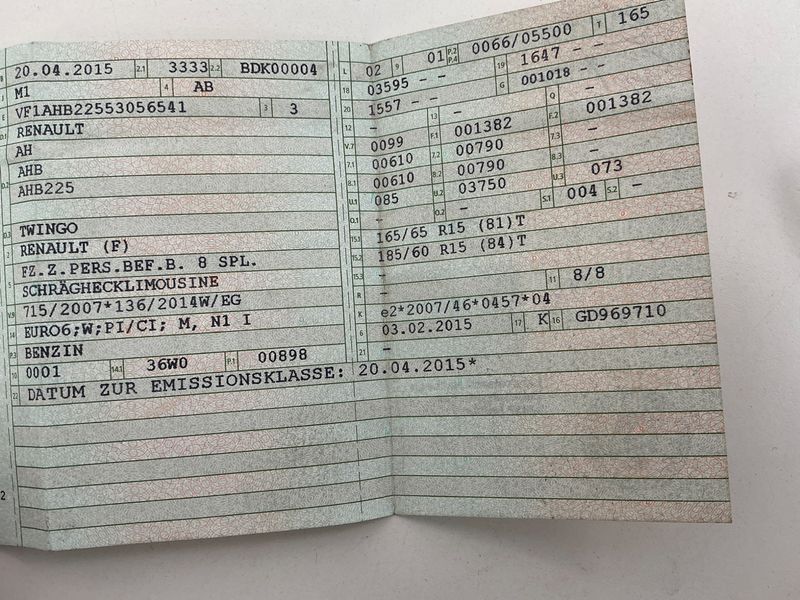 B 20.04.2015 2.1 3333 2.2 BDK00004
J M1 4 AB
E VF1AHB22553056541 3 3
D.1 RENAULT
AH
D.2 AHB
AHB225
D.3 TWINGO
2 RENAULT (F)
5 FZ.Z.PERS.BEF.B. 8 SPL.
SCHRÄGHECKLIMOUSINE
V.9 715/2007*136/2014W/EG
14 EURO6;W;PI/CI; M, N1 I
P.3 BENZIN
10 0001 14.1 36W0 P.1 00898
22 DATUM ZUR EMISSIONSKLASSE: 20.04.2015*
L 02 9 01 P.2 P.4 0066/05500 T 165
18 03595 - - 19 1647 - -
20 1557 - - G 001018 - -
12 - 13 - Q -
V.7 0099 F.1 001382 F.2 001382
7.1 00610 7.2 00790 7.3 -
8.1 00610 8.2 00790 8.3 -
U.1 085 U.2 03750 U.3 073
O.1 - O.2 - S.1 004 S.2 -
15.1 165/65 R15 (81)T
15.2 185/60 R15 (84)T
15.3 -
R - 11 8/8
K e2*2007/46*0457*04
6 03.02.2015 17 K 16 GD969710
21 -
2